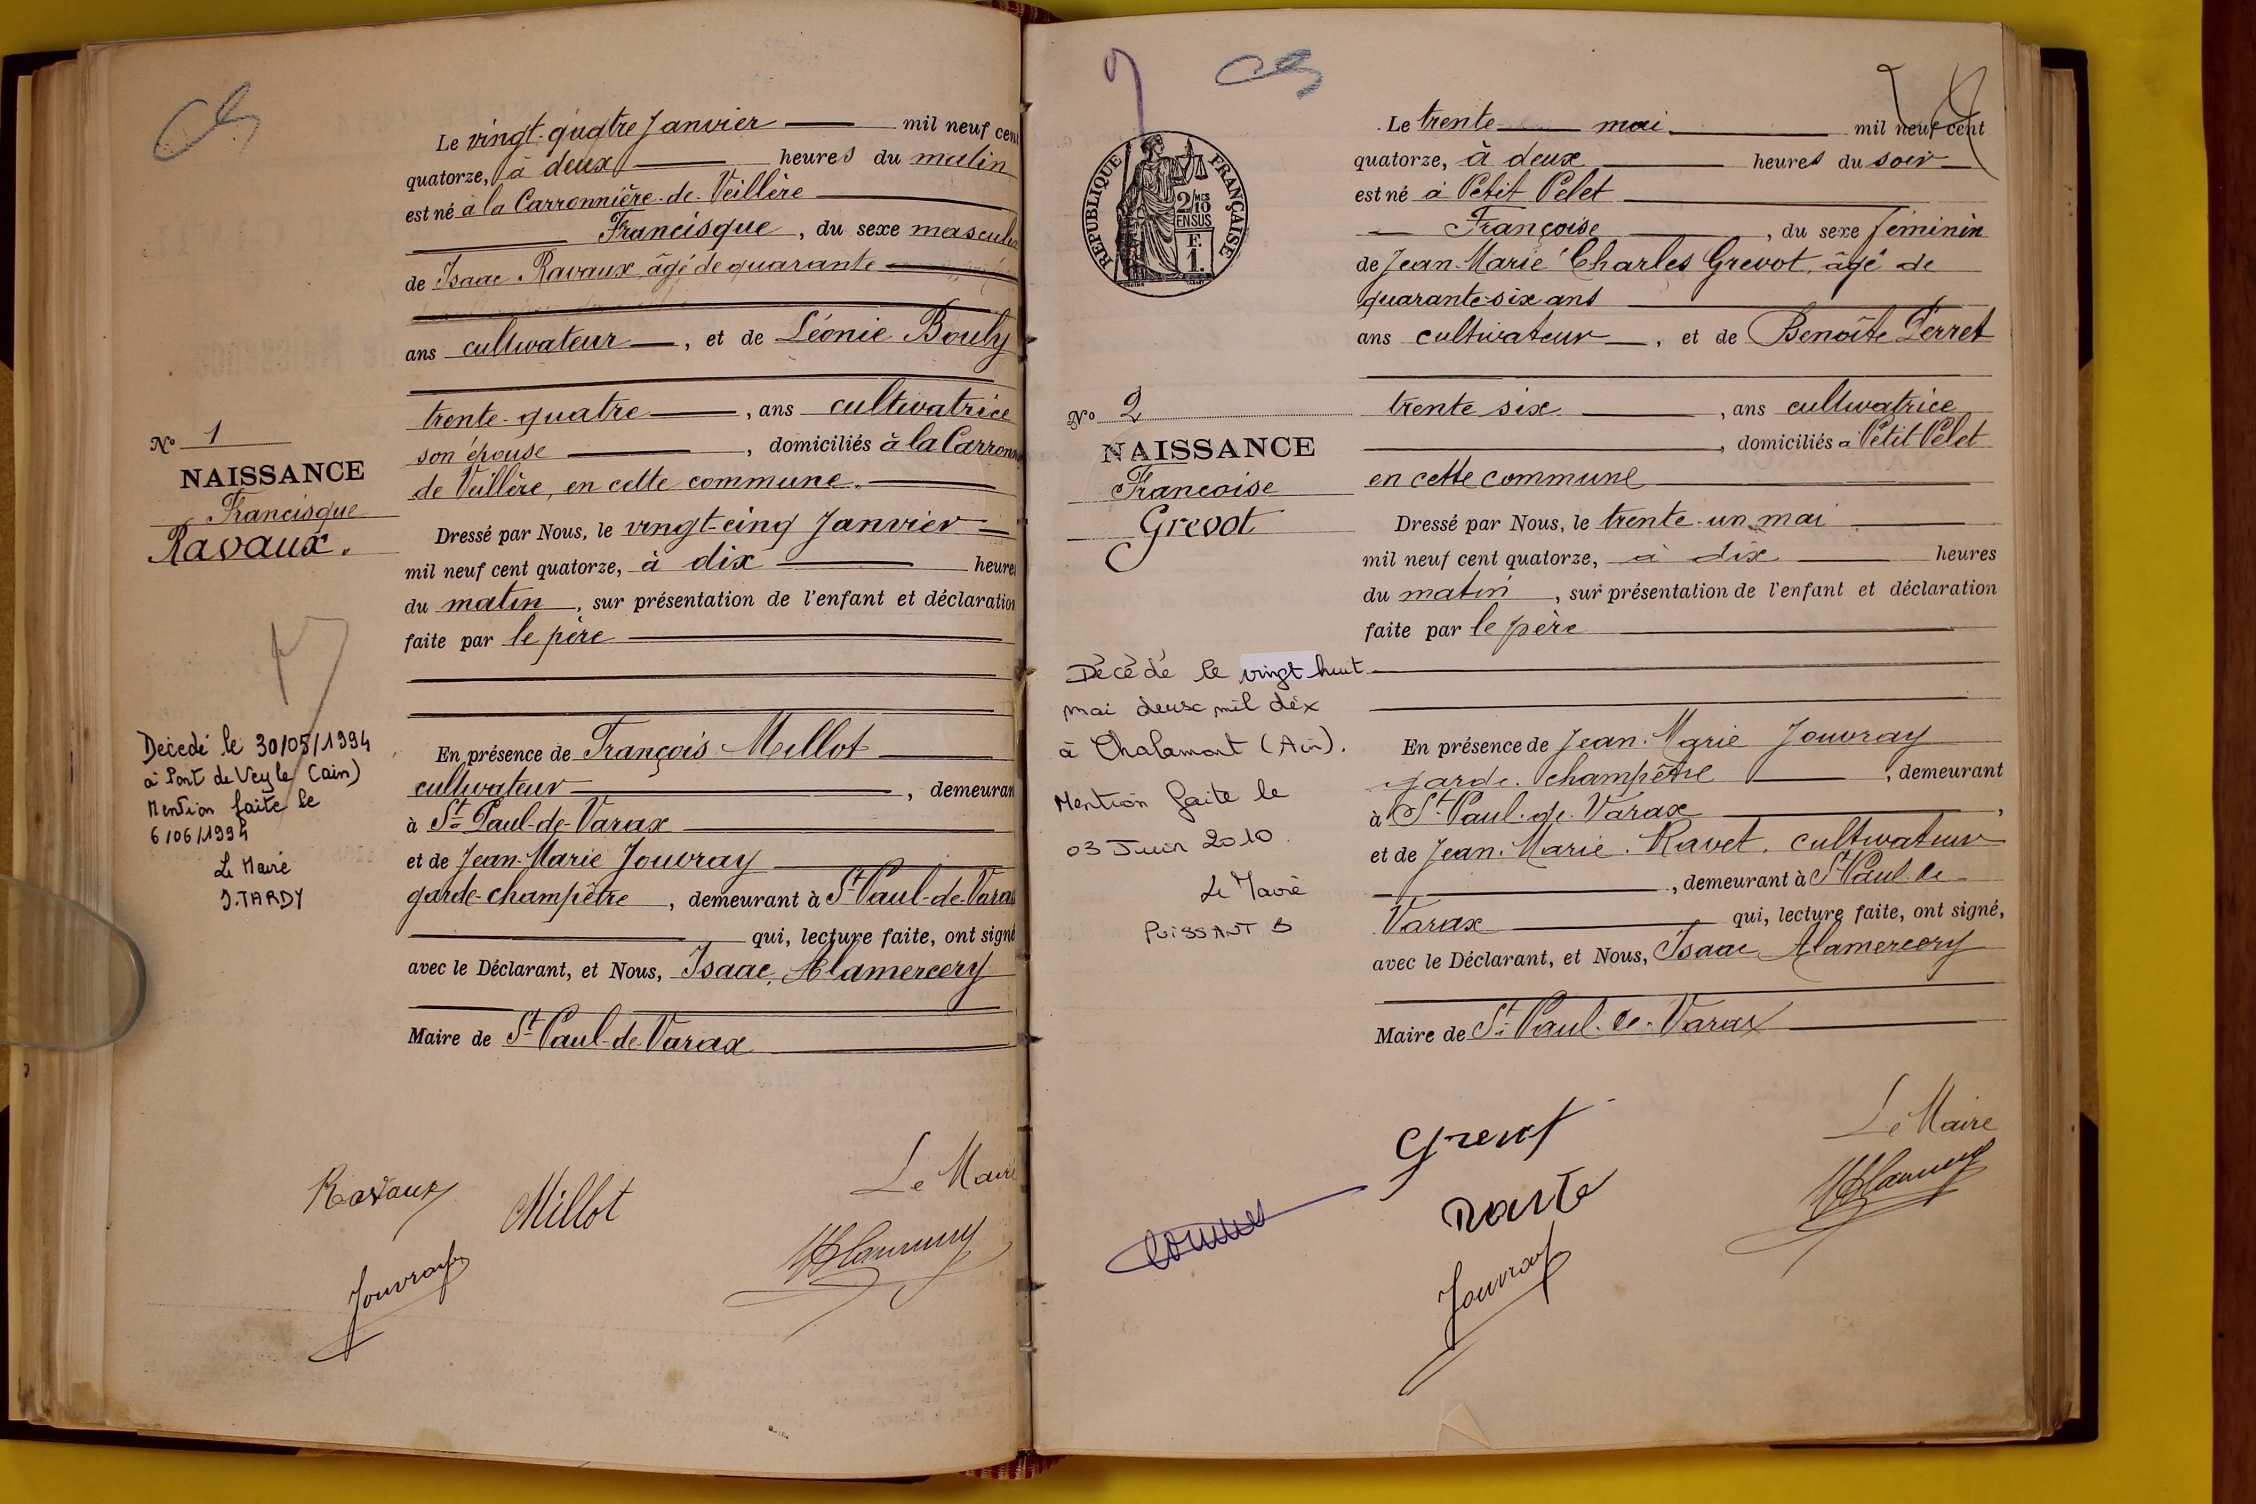 Le vingt-quatre Janvier mil neuf cent
quatorze, à deux heures du matin
est né à la Carronnière-de-Veillère
Francisque, du sexe masculin
de Isaac Ravaux âgé de quarante
ans cultivateur, et de Léonie Bouly
trente-quatre, ans cultivatrice
son épouse, domiciliés à la Carronn
de Veillère, en cette commune.
Dressé par Nous, le vingt-cinq Janvier
mil neuf cent quatorze, à dix heures
du matin, sur présentation de l'enfant et déclaration
faite par le père
En présence de François Millot
cultivateur, demeurant
à St Paul-de-Varax
et de Jean-Marie Jouvray
garde-champêtre, demeurant à St Paul-de-Varax
qui, lecture faite, ont signé
avec le Déclarant, et Nous, Isaac Alamercery
Maire de St Paul-de-Varax
No 1
NAISSANCE
Francisque
Ravaux.
Décédé le 30/05/1994
à Pont de Veyle (ain)
Mention faite le
6/06/1994
Le Maire
J. TARDY
Ravaux
Millot
Jouvray
Le Maire
Le trente mai mil neuf cent
quatorze, à deux heures du soir
est né à Petit Pelet
Françoise, du sexe féminin
de Jean-Marie Charles Grevot, âgé de
quarante-six ans
ans cultivateur, et de Benoîte Perret
trente six, ans cultivatrice
, domiciliés à Petit Pelet
en cette commune
Dressé par Nous, le trente-un mai
mil neuf cent quatorze, à dix heures
du matin, sur présentation de l'enfant et déclaration
faite par le père
En présence de Jean-Marie Jouvray
garde-champêtre, demeurant
à St Paul-de-Varax,
et de Jean-Marie Ravet, cultivateur
, demeurant à St Paul-de-
Varax qui, lecture faite, ont signé,
avec le Déclarant, et Nous, Isaac Alamercery
Maire de St Paul-de-Varax
RÉPUBLIQUE FRANÇAISE
2/10 MES
EN SUS
F.
1.
No 2
NAISSANCE
Françoise
Grevot
Décédé le vingt huit
mai deux mil dix
à Chalamont (Ain).
Mention faite le
03 Juin 2010.
Le Maire
PUISSANT B
Grevot
Jouvray
Le Maire